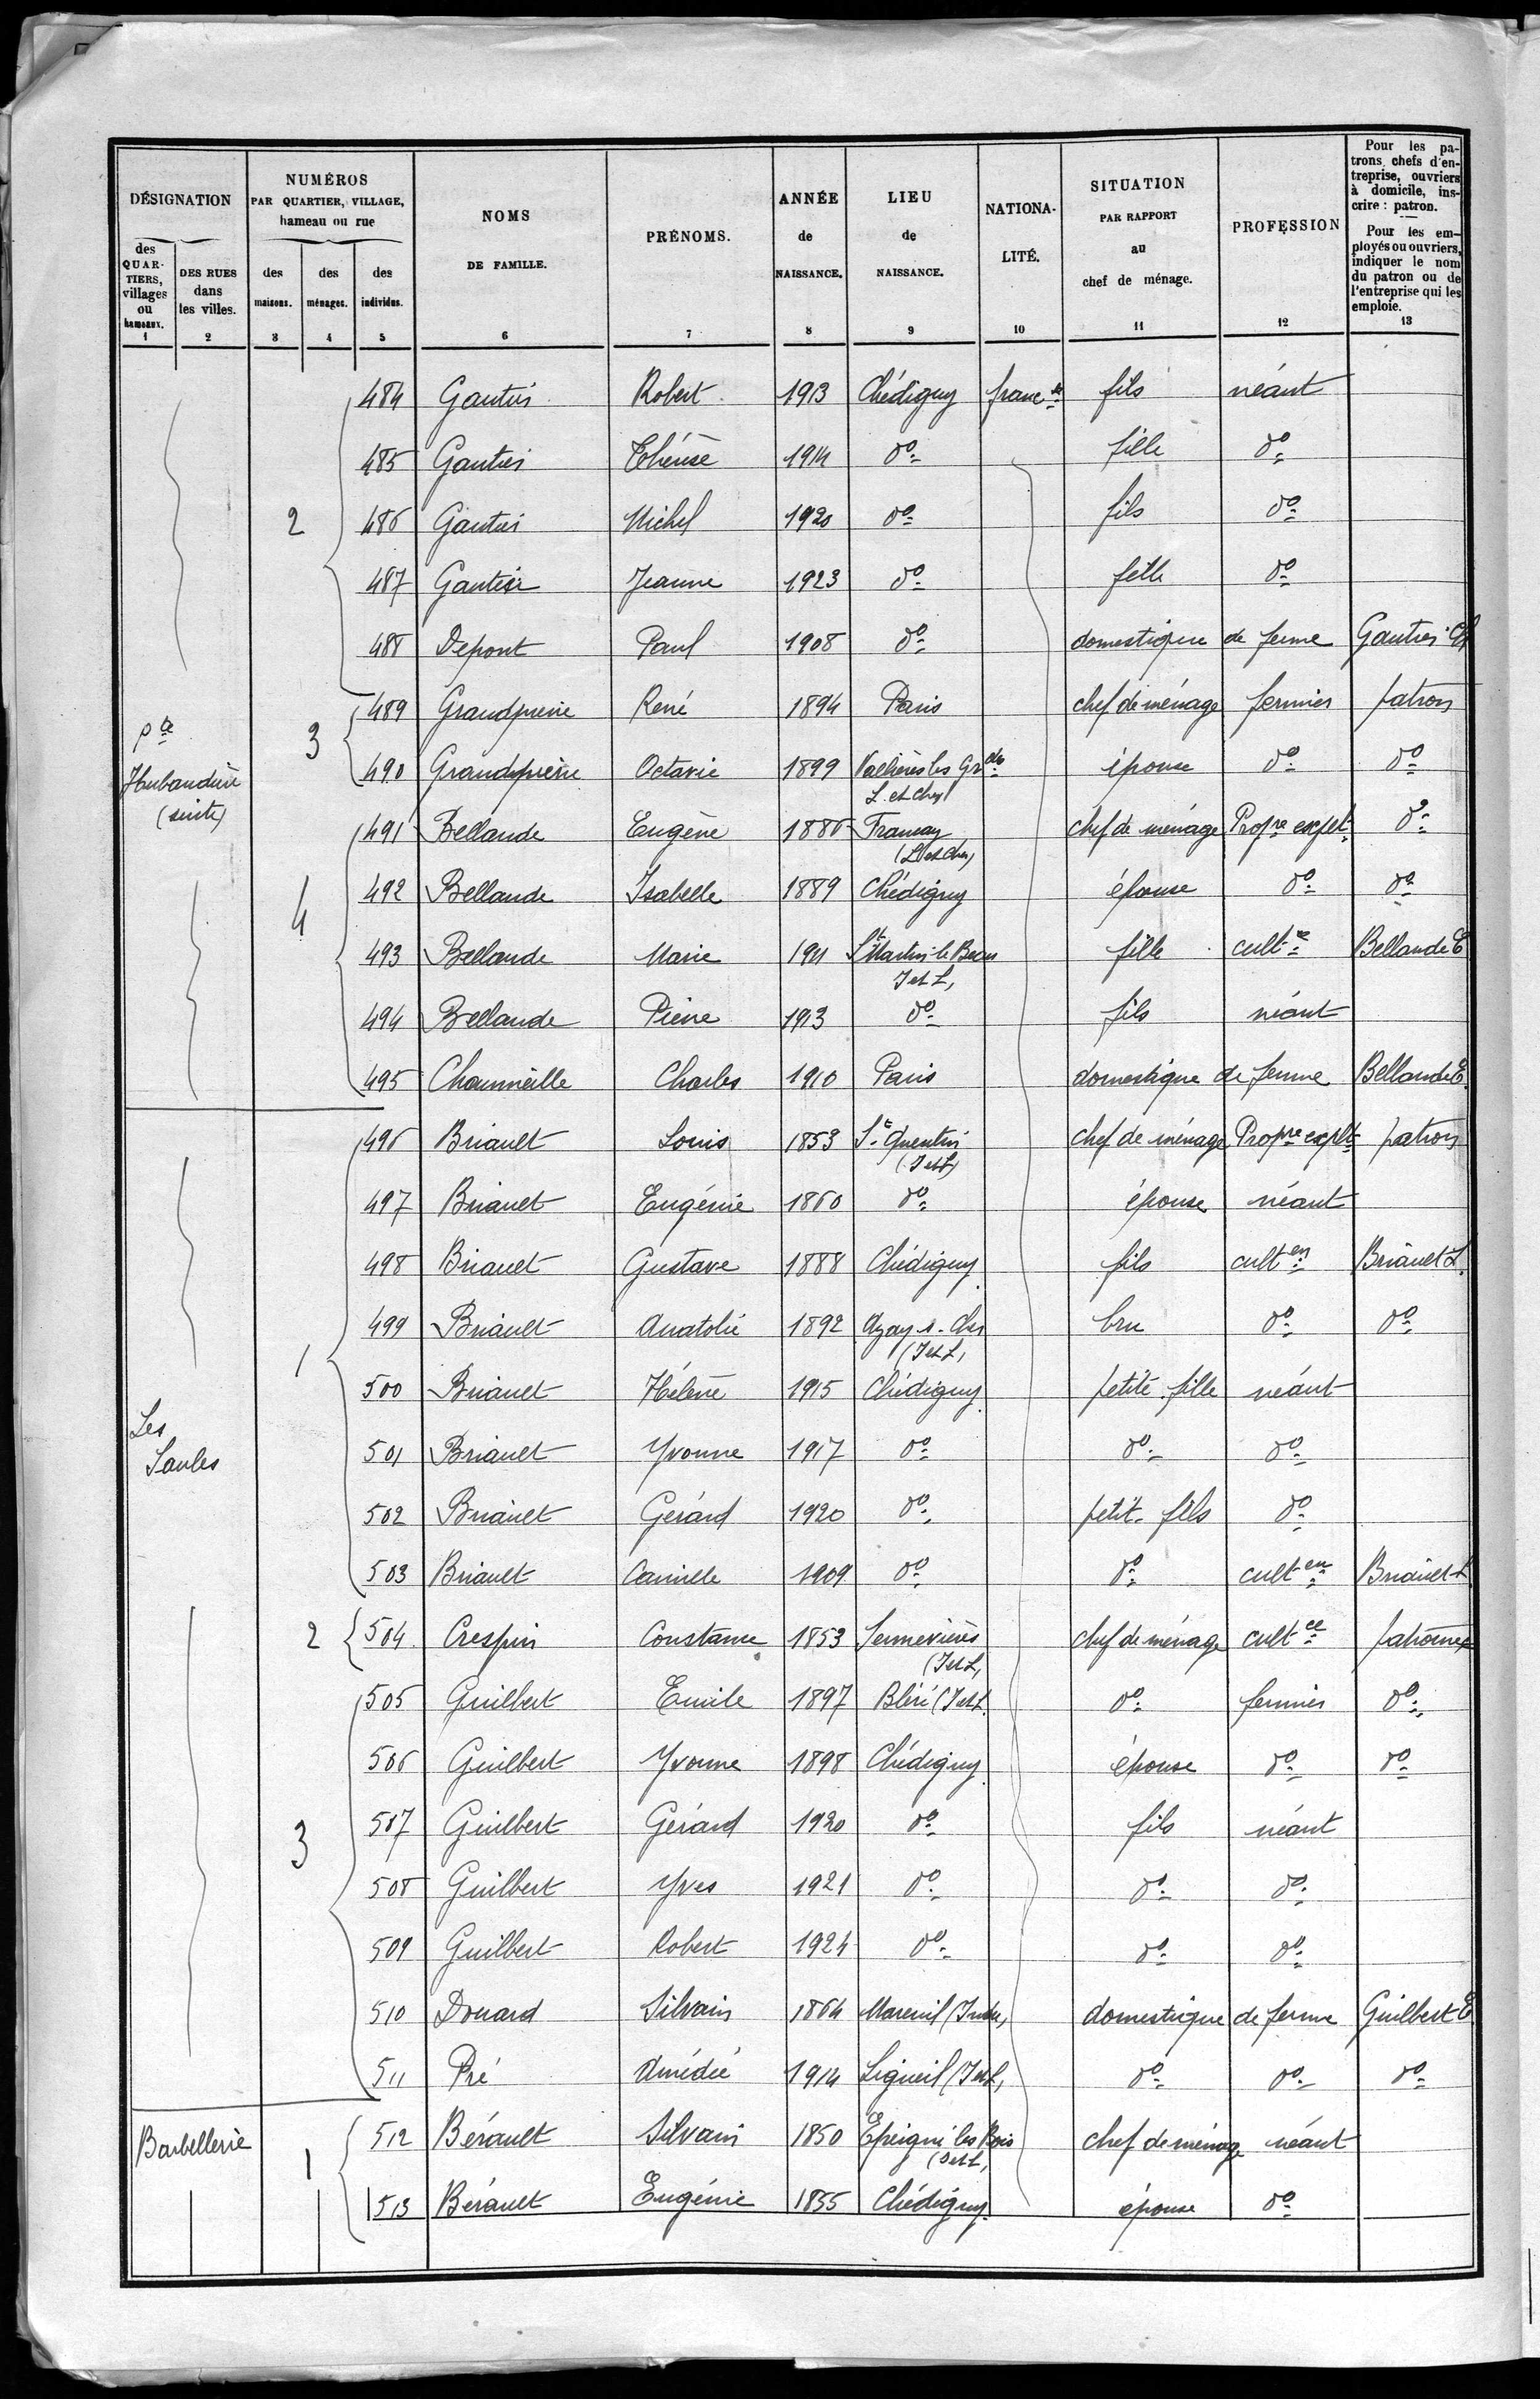 DÉSIGNATION
des QUARTIERS, villages ou hameaux.
1
DES RUES dans les villes.
2
NUMÉROS
PAR QUARTIER, VILLAGE,
hameau ou rue
des maisons.
3
des ménages.
4
des individus.
5
NOMS
DE FAMILLE.
6
PRÉNOMS.
7
ANNÉE
de
NAISSANCE.
8
LIEU
de
NAISSANCE.
9
NATIONA-
LITÉ.
10
SITUATION
PAR RAPPORT
au
chef de ménage.
11
PROFESSION
12
Pour les pa-
trons, chefs d'en-
treprise, ouvriers
à domicile, ins-
crire : patron.
Pour les em-
ployés ou ouvriers,
indiquer le nom
du patron ou de
l'entreprise qui les
emploie.
13
484 Gautier Robert 1913 Chédigny franc se fils néant
485 Gautier Thérèse 1914 do fille do
2 486 Gautier Michel 1920 do fils do
487 Gautier Jeanne 1923 do fille do
488 Depont Paul 1908 do domestique de ferme Gautier
pte Hubaudière (suite)
3 489 Grandpierre René 1894 Paris chef de ménage fermier patron
490 Grandpierre Octavie 1899 Vallières les Grdes L. et Cher épouse do do
491 Bellande Eugène 1886 Françay (L et Cher) chef de ménage Propre explt do
4 492 Bellande Isabelle 1889 Chédigny épouse do do
493 Bellande Marie 1911 St Martin-le-Beau I et L, fille cultce Bellande E
494 Bellande Pierre 1913 do fils néant
495 Charles 1910 Paris domestique de ferme Bellande E.
Les Saules
1 496 Briault Louis 1853 St Quentin (I et L) chef de ménage Propre explt patron
497 Briault Eugénie 1860 do épouse néant
498 Briault Gustave 1888 Chédigny fils culteur Briault L.
499 Briault Anatolie 1892 Azay-s-Cher (I et L, bru do do
500 Briault Hélène 1915 Chédigny petite fille néant
501 Briault Yvonne 1917 do do do
502 Briault Gérard 1920 do petit-fils do
503 Briault Camille 1909 do do culteur Briault L
2 504 Crespin Constance 1853 Sennevières (I et L, chef de ménage cultce patronne
3 505 Guilbert Emile 1897 Bléré (I et L. do fermier do
506 Guilbert Yvonne 1898 Chédigny épouse do do
507 Guilbert Gérard 1920 do fils néant
508 Guilbert Yves 1921 do do do
509 Guilbert Robert 1924 do do do
510 Douard Silvain 1864 Mareuil (Indre, domestique de ferme Guilbert E
511 Pré Amédée 1914 Ligueil (I et L, do do do
Barbellerie
1 512 Bérault Silvain 1850 Epeigné les Bois (I et L, chef de ménage néant
513 Bérault Eugénie 1855 Chédigny épouse do